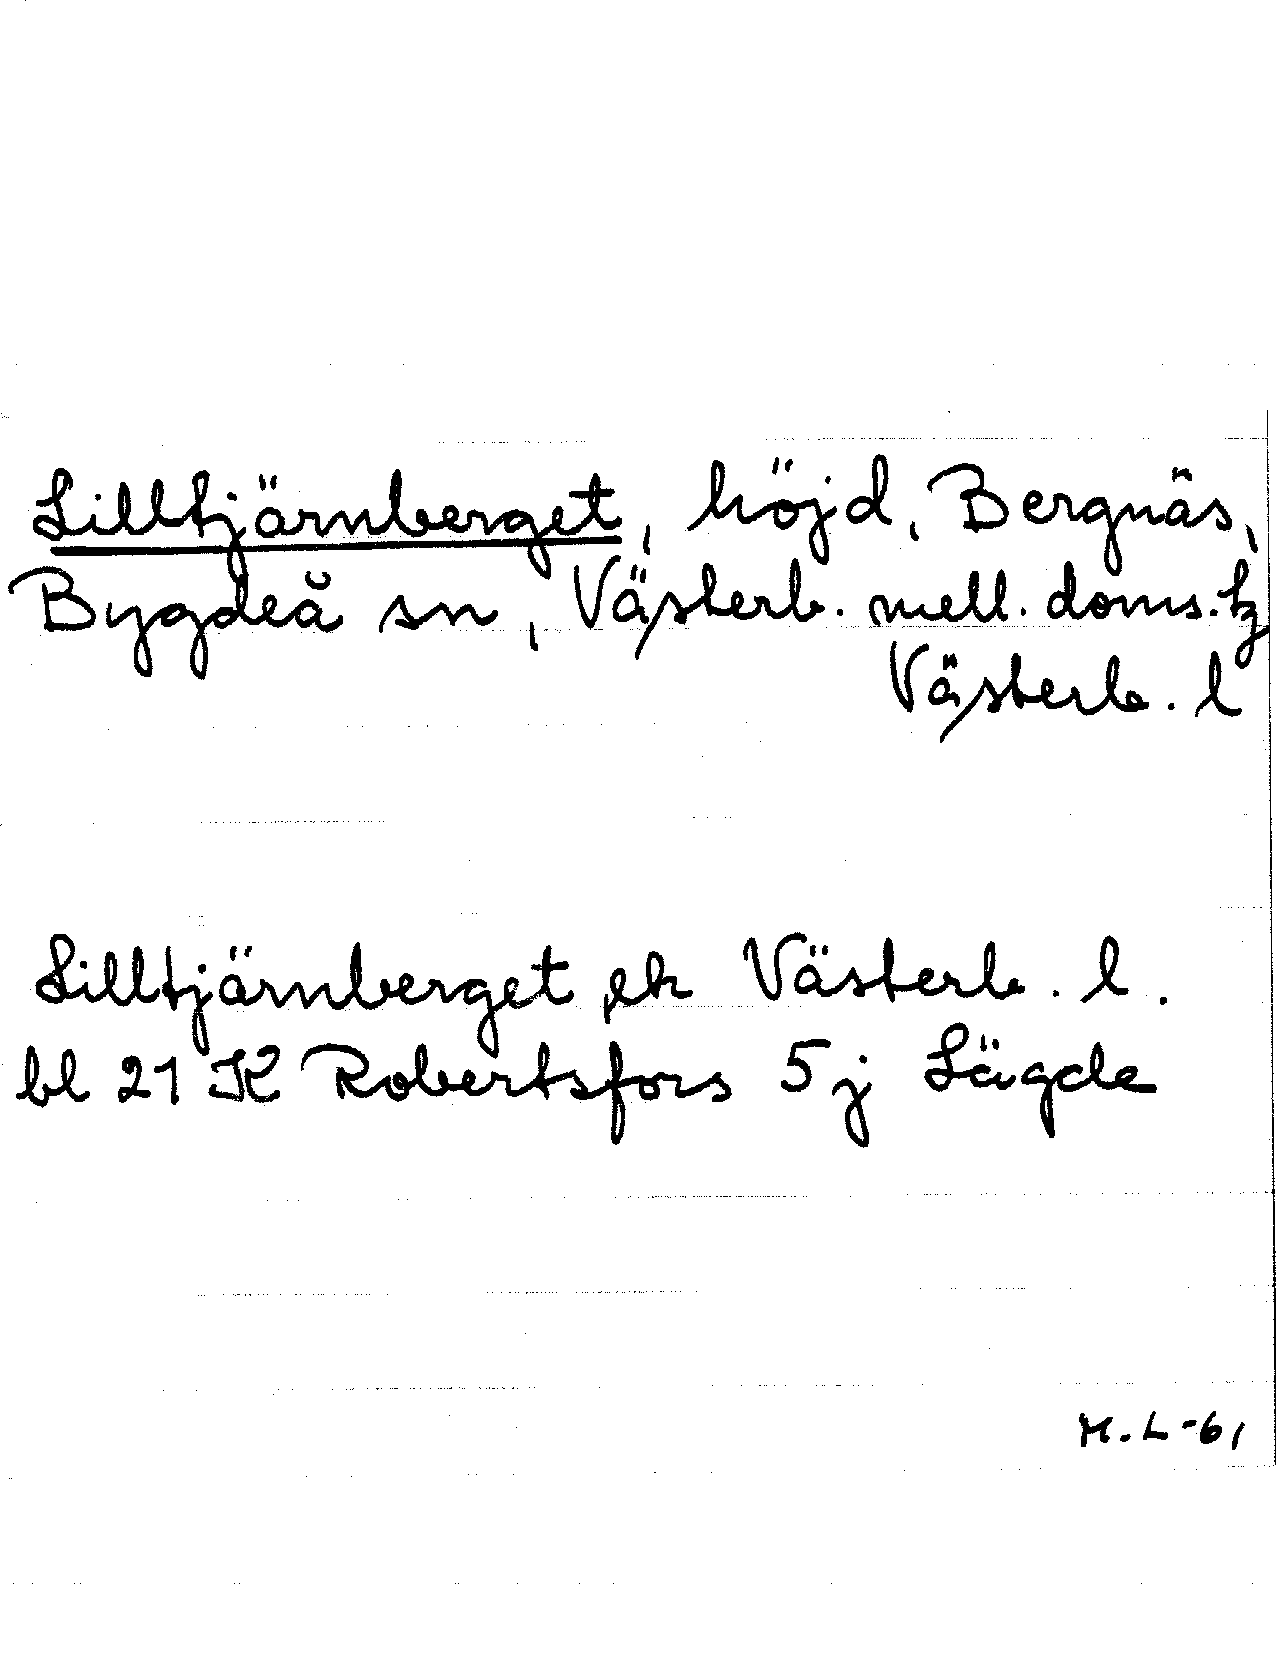 Lilltjärnberget, höjd, Bergnäs,
Bygdeå sn, Västerb. mell. doms. tg
Västerb. l
Lilltjärnberget, ek Västerb. l.
bl 21 K Robertsfors 5 j Lägde
M.L-61